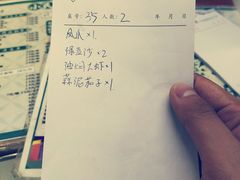 桌号: 35 人数: 2 年 月 日
凤爪×1.
绿豆沙×2
油焖大虾×1
蒜泥茄子×1.